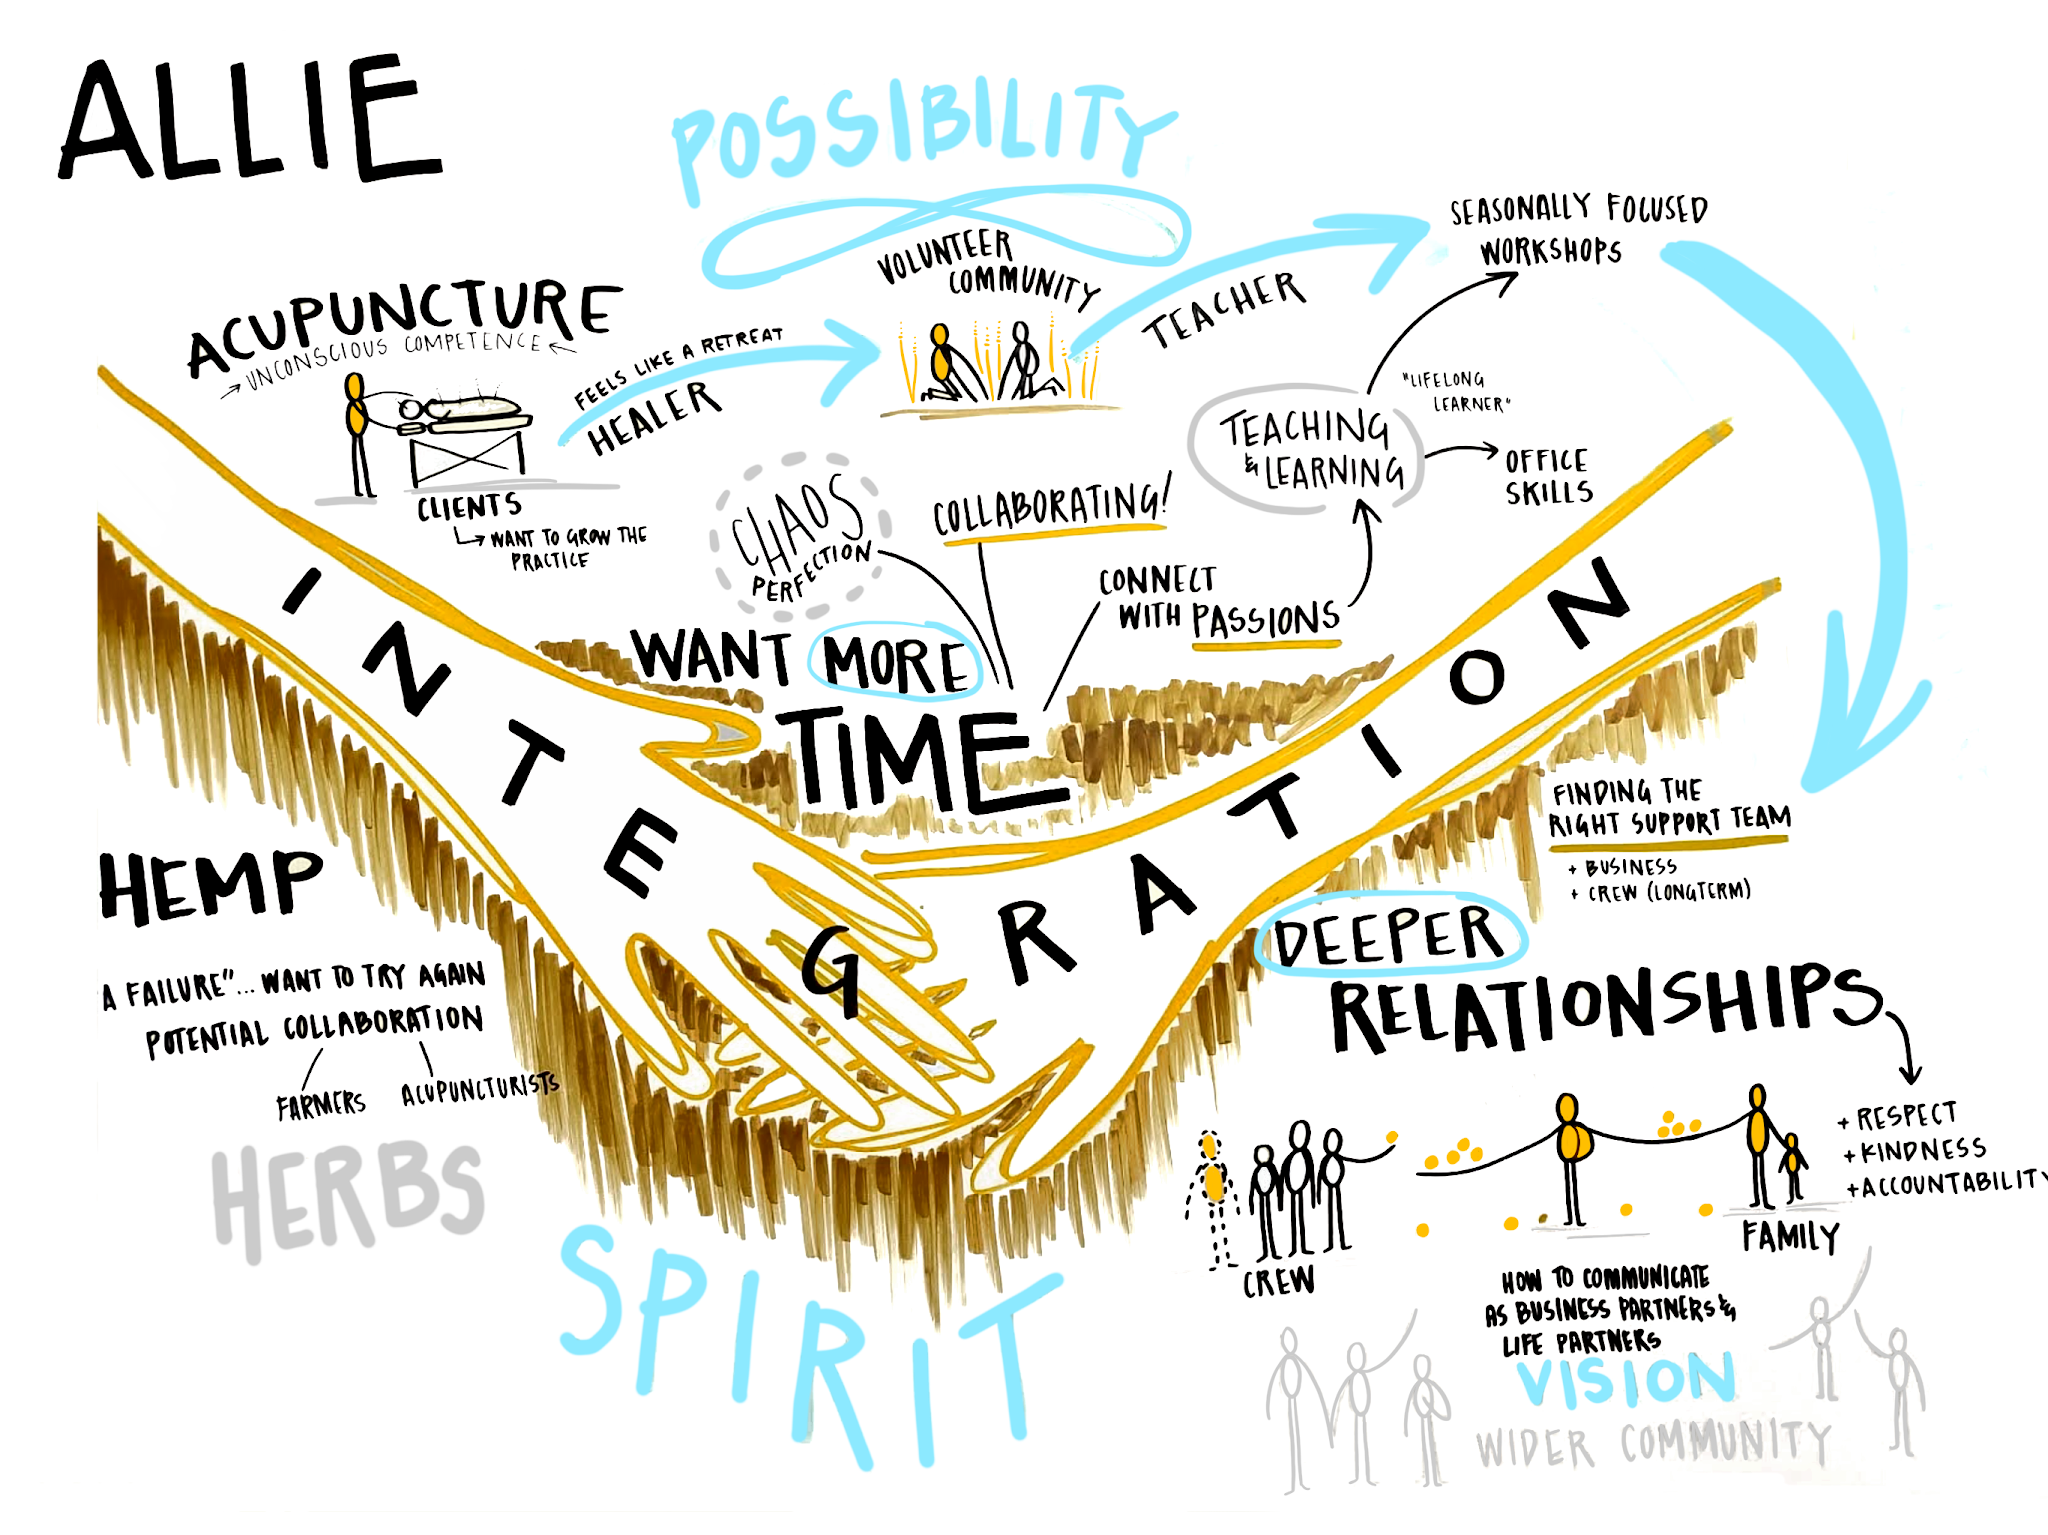 ALLIE
POSSIBILITY
ACUPUNCTURE
→ UNCONSCIOUS COMPETENCE ←
CLIENTS
↳ WANT TO GROW THE
PRACTICE
FEELS LIKE A RETREAT
HEALER
VOLUNTEER
COMMUNITY
TEACHER
SEASONALLY FOCUSED
WORKSHOPS
"LIFELONG
LEARNER"
TEACHING
& LEARNING
OFFICE
SKILLS
CHAOS
PERFECTION
COLLABORATING!
CONNECT
WITH PASSIONS
WANT MORE
TIME
INTEGRATION
FINDING THE
RIGHT SUPPORT TEAM
+ BUSINESS
+ CREW (LONGTERM)
HEMP
A FAILURE"... WANT TO TRY AGAIN
POTENTIAL COLLABORATION
FARMERS
ACUPUNCTURISTS
HERBS
SPIRIT
DEEPER
RELATIONSHIPS
+ RESPECT
+ KINDNESS
+ ACCOUNTABILITY
CREW
FAMILY
HOW TO COMMUNICATE
AS BUSINESS PARTNERS &
LIFE PARTNERS
VISION
WIDER COMMUNITY